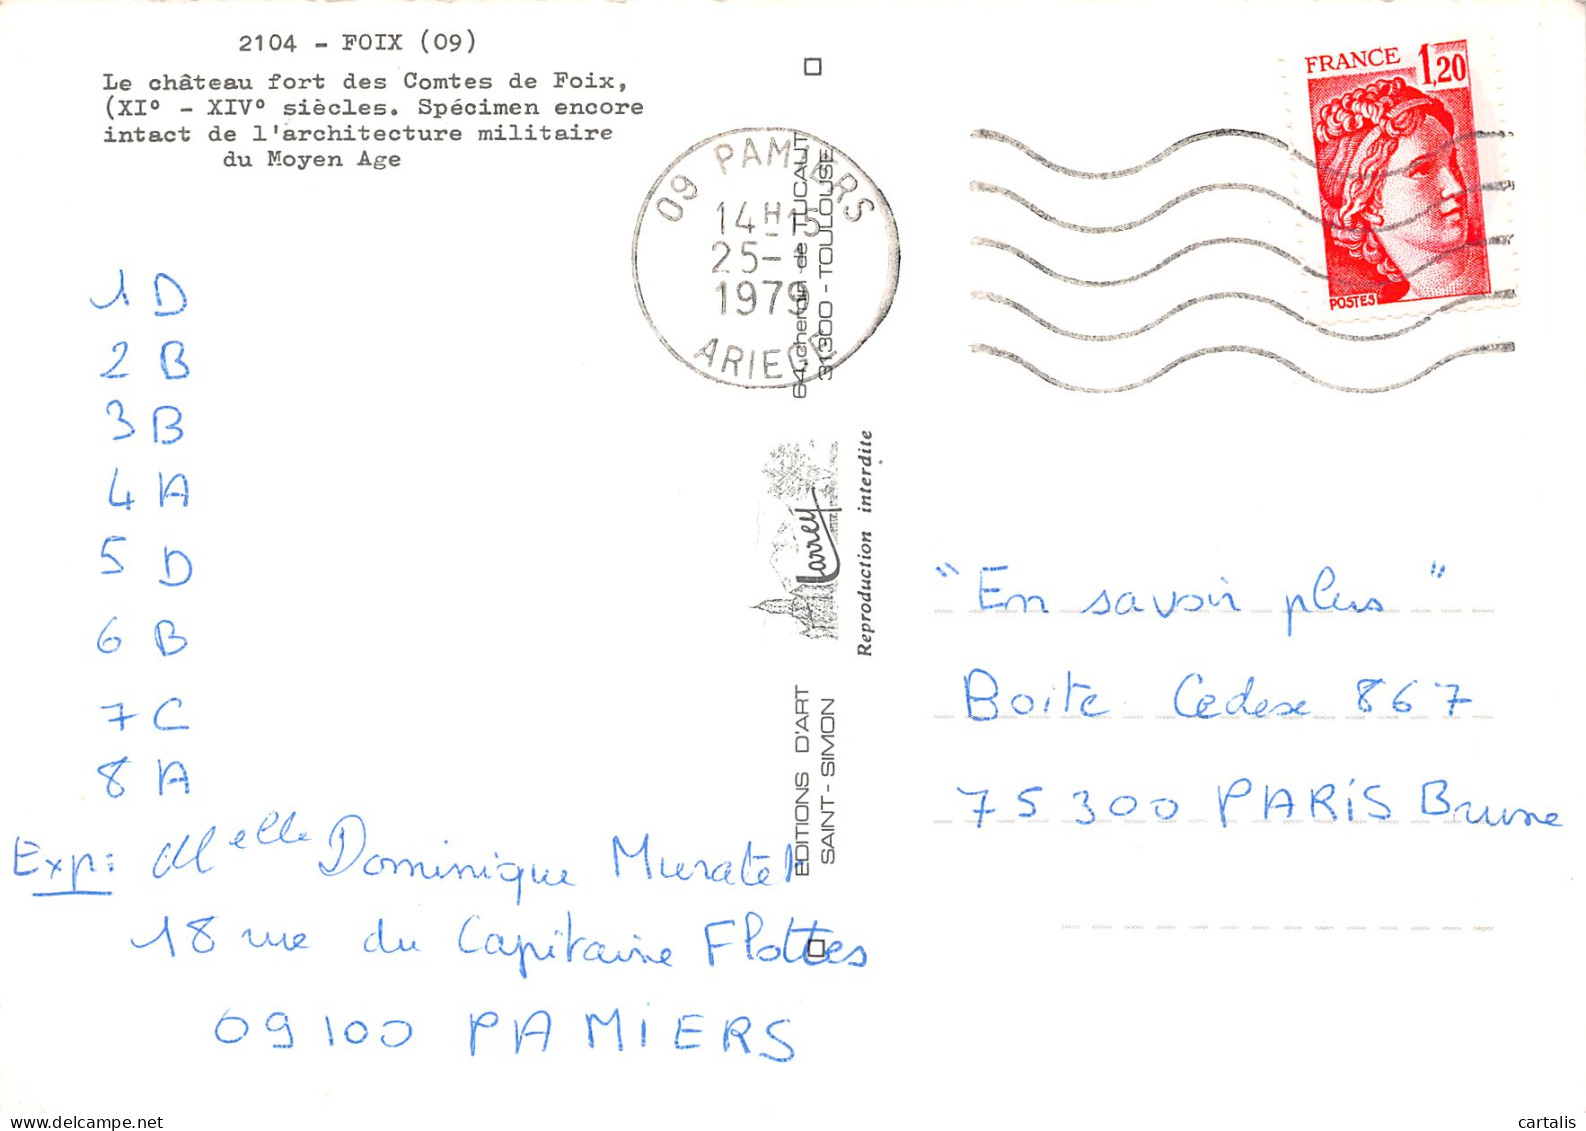 2104 - FOIX (09)
Le château fort des Comtes de Foix,
(XI° - XIV° siècles. Spécimen encore
intact de l'architecture militaire
du Moyen Age
FRANCE 1,20
POSTES
09 PAMIERS
14H15
25-
1979
ARIEGE
64, chemin de TUCAUT
31300 - TOULOUSE
Larrey
Reproduction interdite
EDITIONS D'ART
SAINT - SIMON
1 D
2 B
3 B
4 A
5 D
6 B
7 C
8 A
Exp: Melle Dominique Muratel
18 rue du Capitaine Flottes
09100 PAMIERS
"En savoir plus"
Boite Cedex 867
75300 PARIS Brune
cartalis